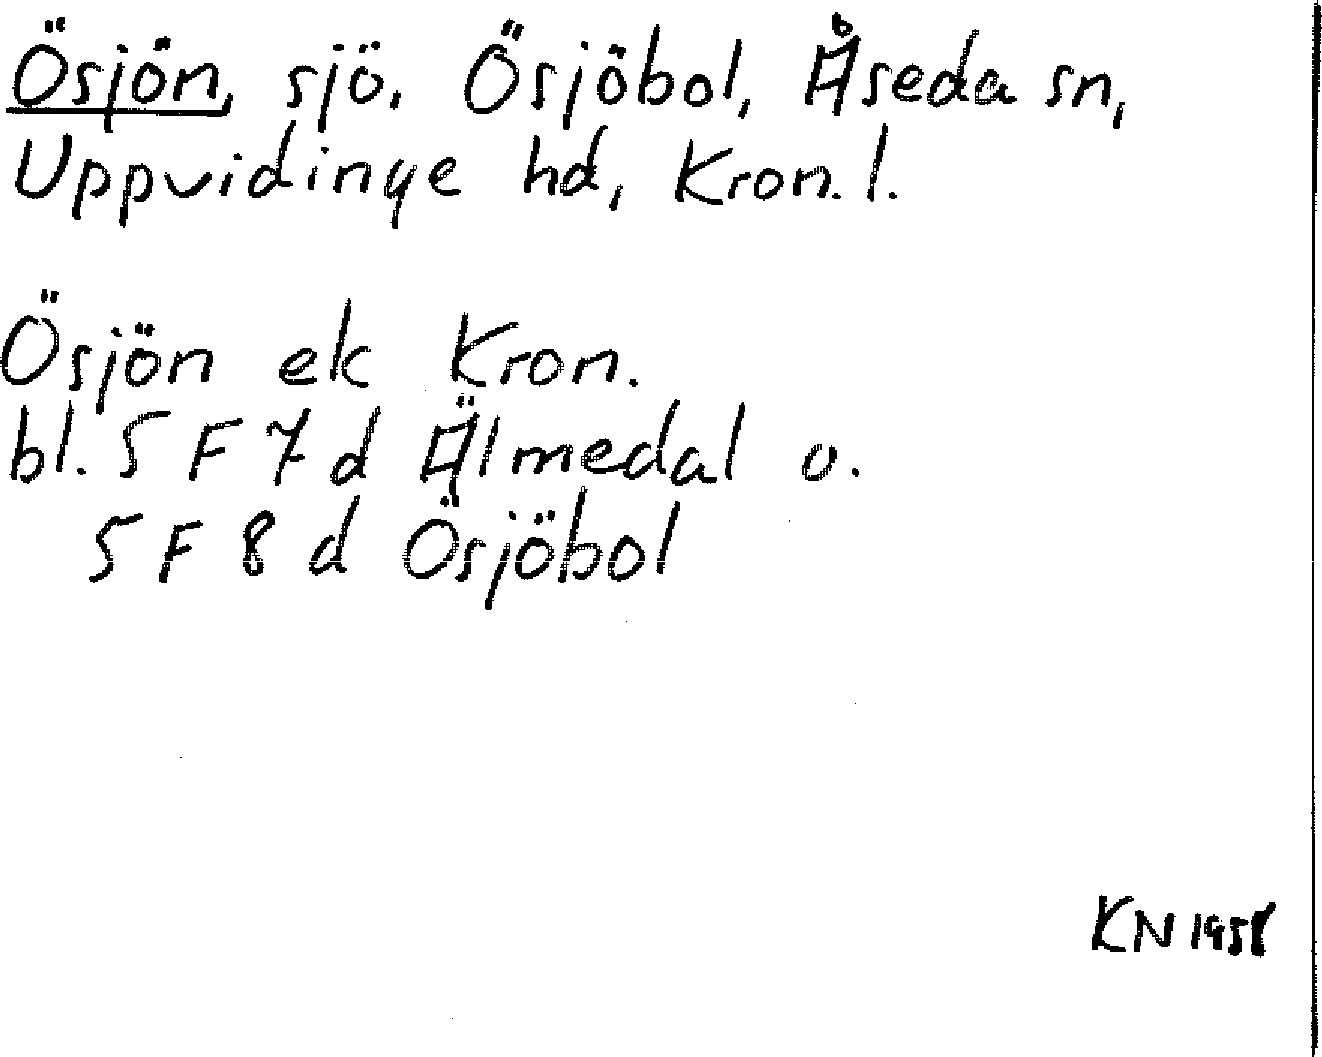 Ösjön, sjö. Ösjöbol, Åseda sn,
Uppvidinge hd, Kron. l.
Ösjön ek Kron.
bl. 5 F 7 d Älmedal o.
5 F 8 d Ösjöbol
KN 1958